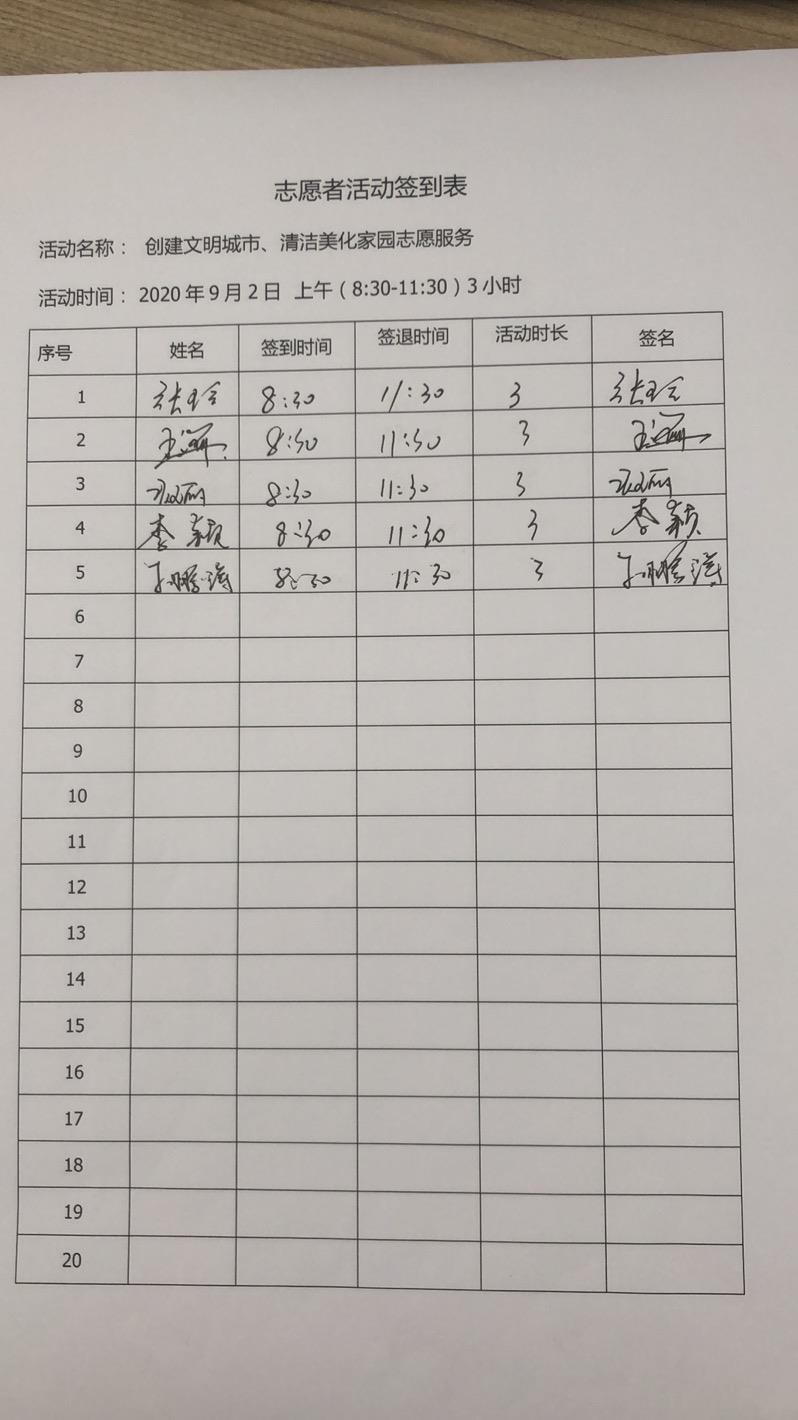 志愿者活动签到表
活动名称： 创建文明城市、清洁美化家园志愿服务
活动时间：2020年9月2日 上午（8:30-11:30）3小时
序号 姓名 签到时间 签退时间 活动时长 签名
1 张玲 8:30 11:30 3 张玲
2 8:30 11:30 3
3 8:30 11:30 3
4 李颖 8:30 11:30 3 李颖
5 8:30 11:30 3
6
7
8
9
10
11
12
13
14
15
16
17
18
19
20